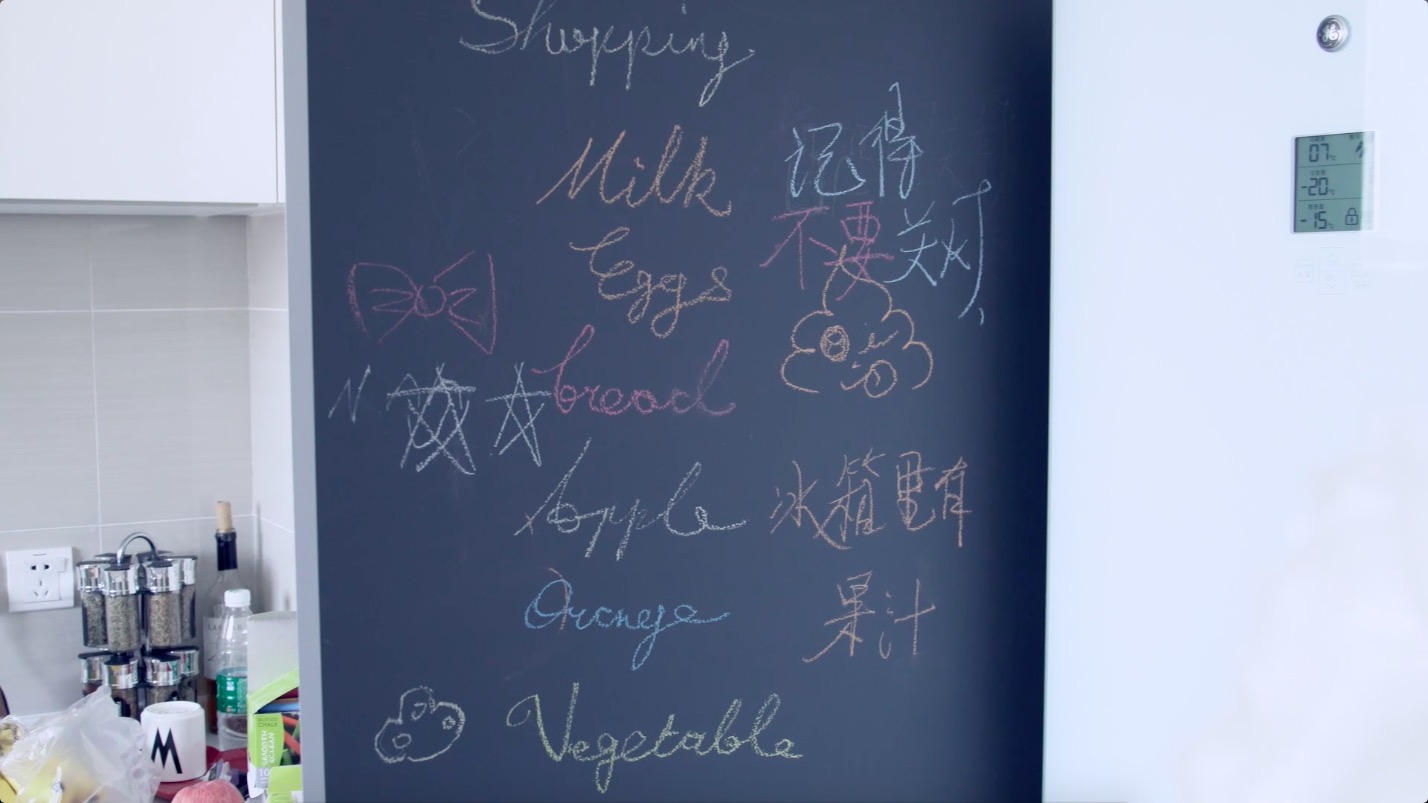 Shopping
Milk
记得
不要关灯
Eggs
bread
N
Apple
冰箱里有
Orange
果汁
Vegetable
07℃
-20℃
-15℃
M
CHALK